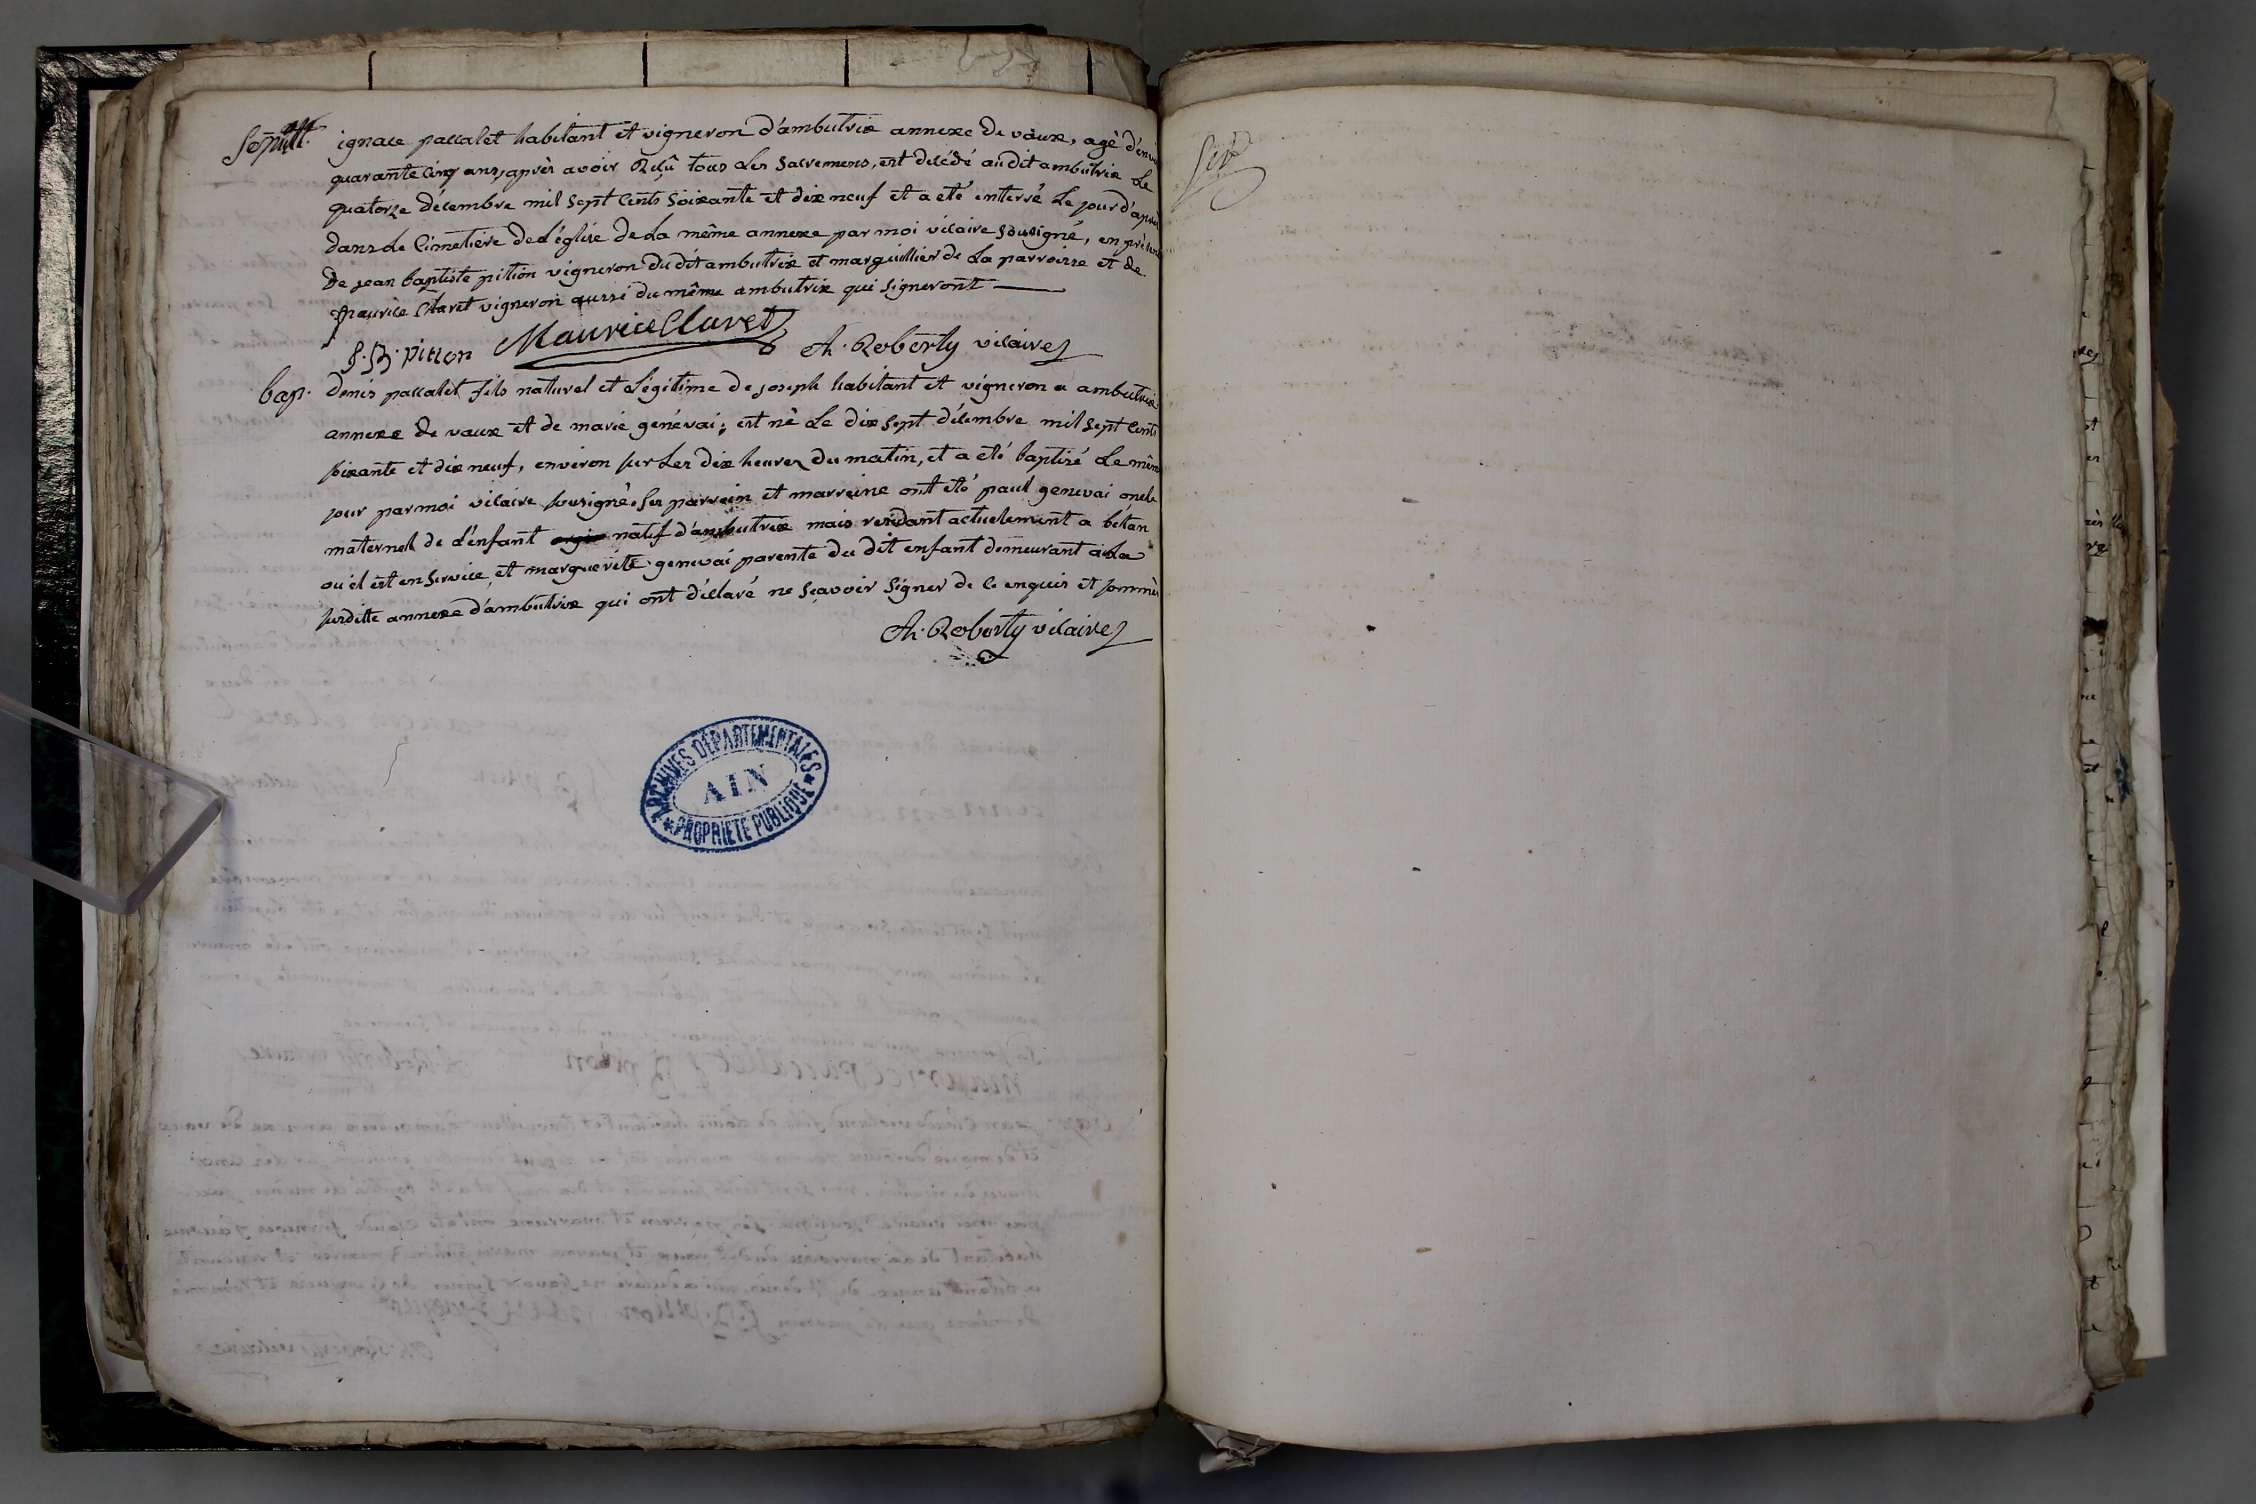 Sepult.
ignace pascalet habitant et vigneron d'ambutrix annexe de vaux, agé d'envi
quarante cinq ans, après avoir reçû tous les sacremens, est décédé au dit ambutrix le
quatorze decembre mil sept cents soixante et dix neuf et a eté enterré le jour d'après
dans le cimetière de l'église de la même annexe par moi vicaire sousigné, en présence
de jean baptiste pition vigneron du dit ambutrix et marguillier de la parroisse et de
maurice Claret vigneron aussi du même ambutrix qui signeront
J. B. pition Maurice Claret Ch. Roberty vicaire
bap.
denis pascalet fils naturel et légitime de joseph habitant et vigneron a ambutrix
annexe de vaux et de marie genévai; est né le dix sept décembre mil sept cents
soixante et dix neuf, environ sur les dix heures du matin, et a eté baptisé le même
jour par moi vicaire sousigné. Ses parrein et marreine ont eté paul genevai oncle
maternel de l'enfant natif d'ambutrix mais residant actuelement a bétan
ou il est en service, et marguerite genevai parente du dit enfant demeurant a la
susditte annexe d'ambutrix qui ont déclaré ne sçavoir signer de ce enquis et sommés
Ch. Roberty vicaire
ARCHIVES DÉPARTEMENTALES
AIN
PROPRIÉTÉ PUBLIQUE